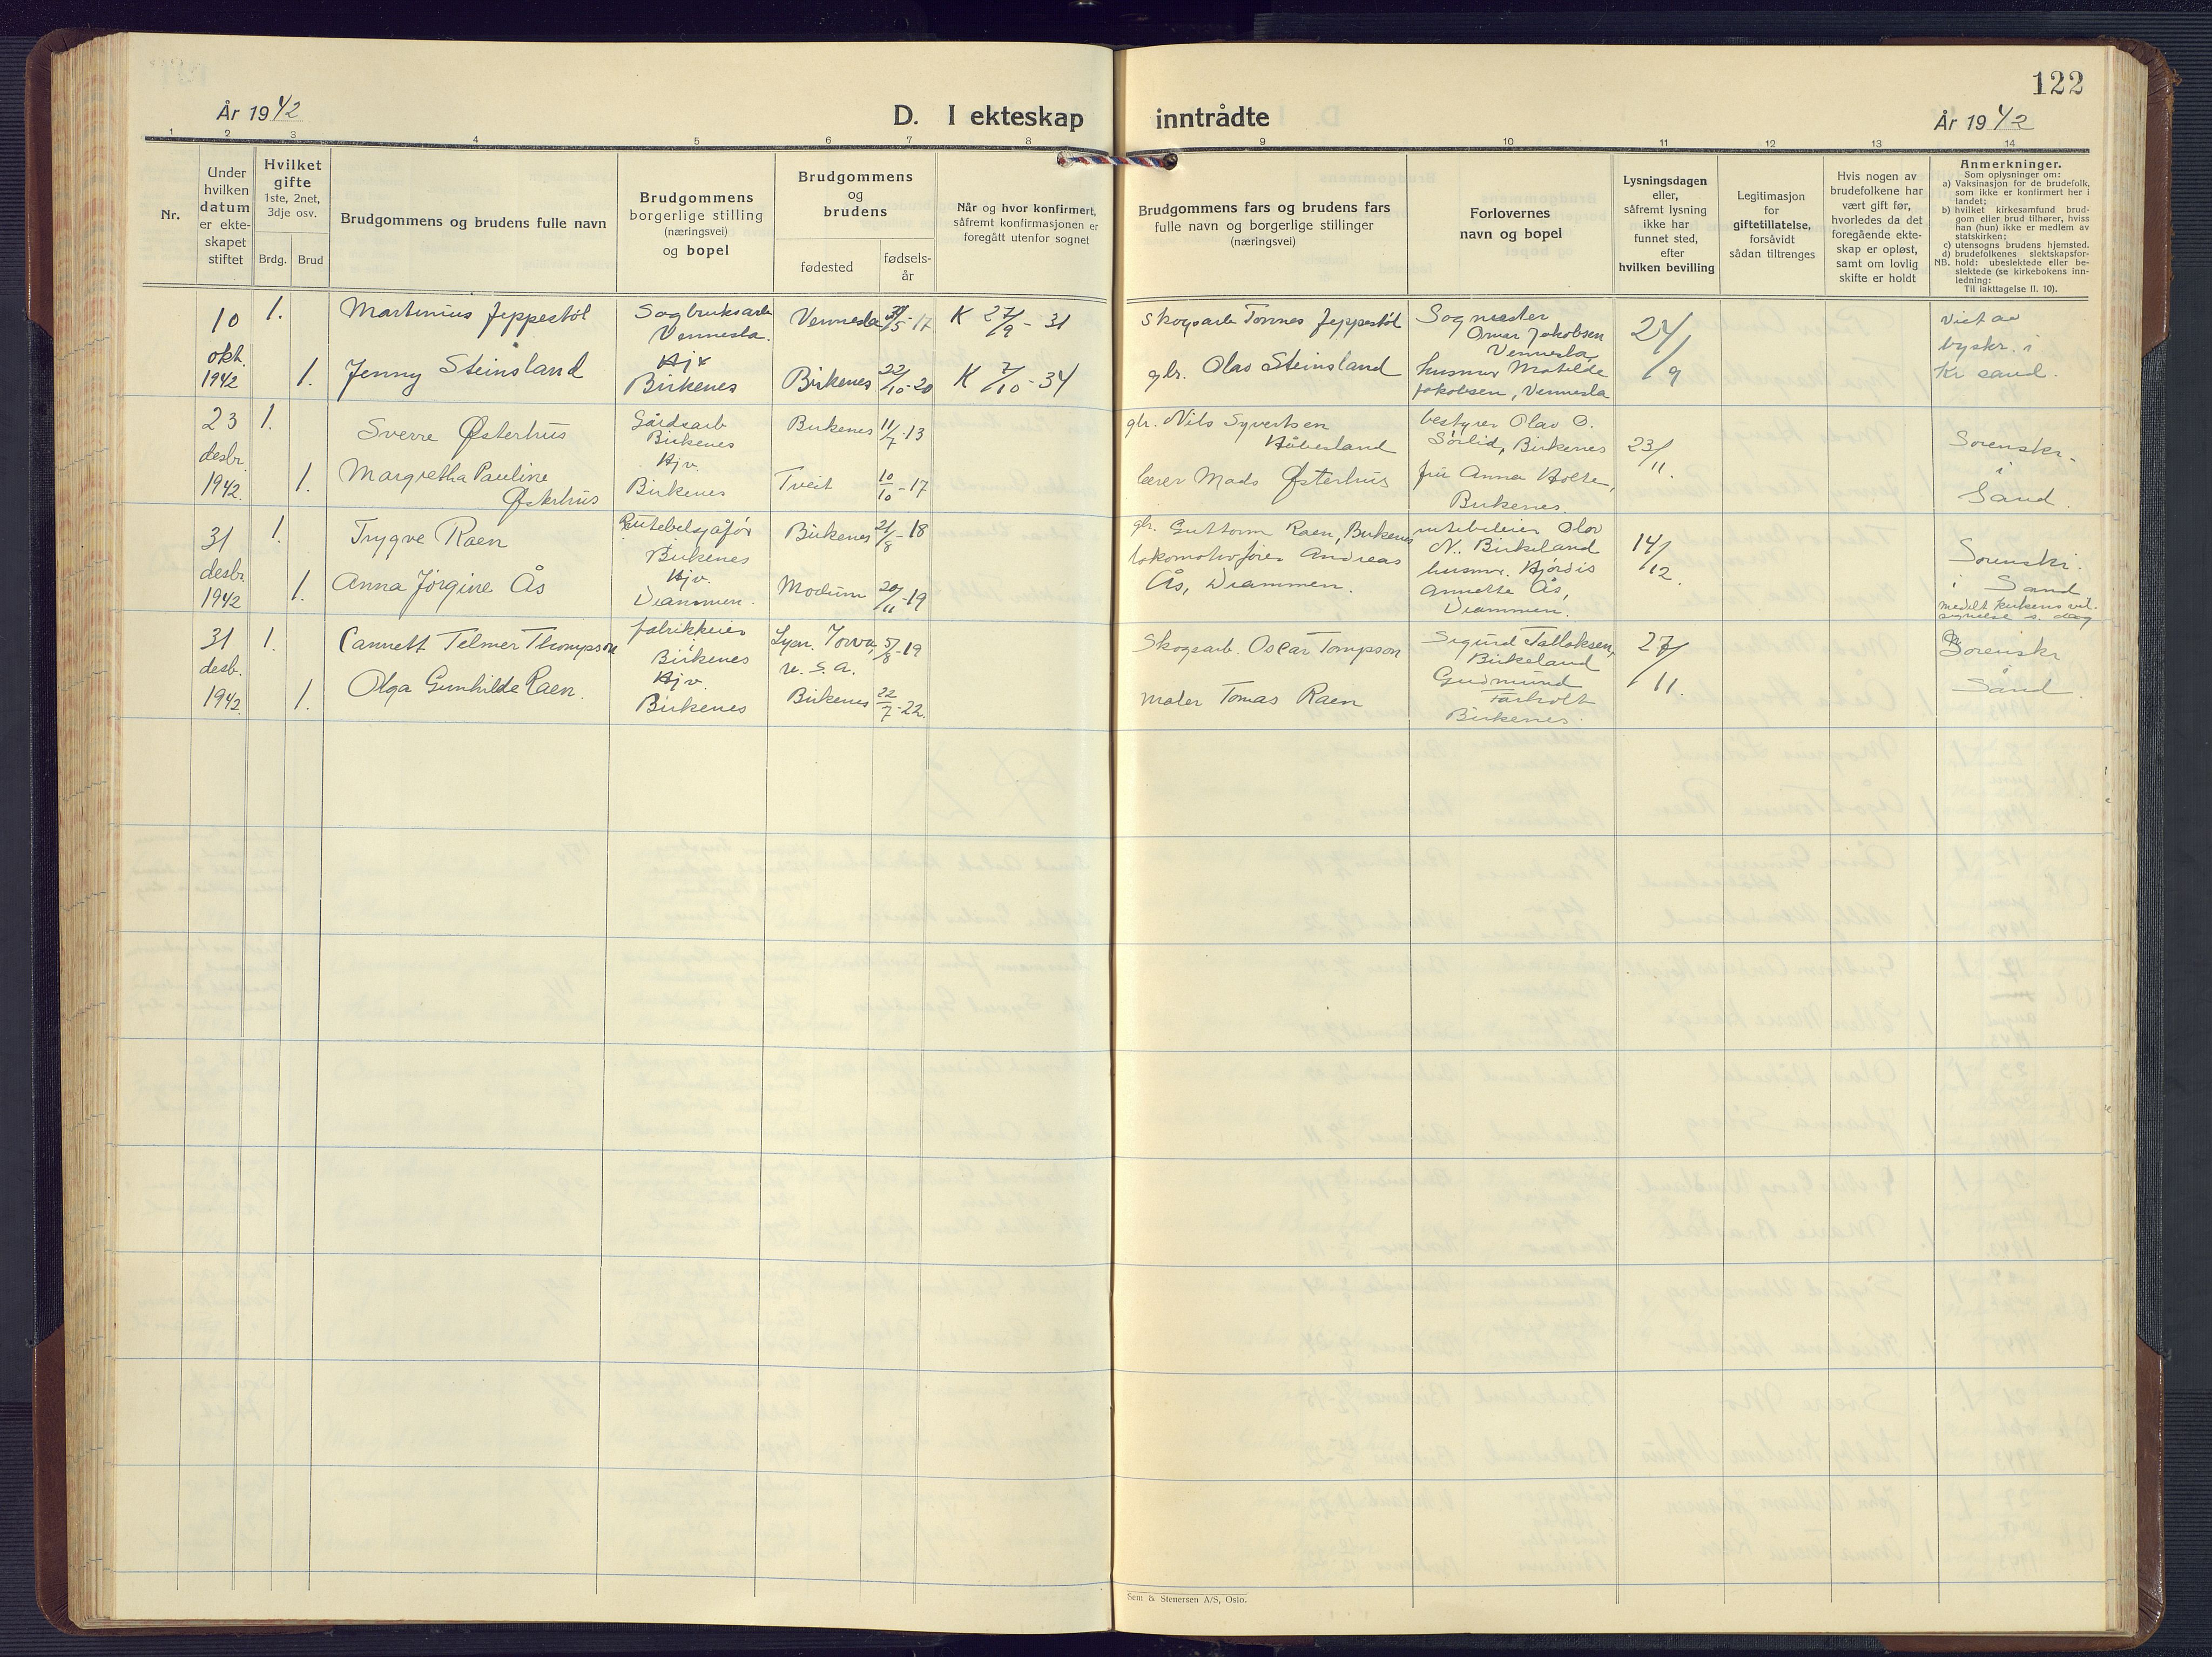 122
År 1942
D. I ekteskap inntrådte
År 1942
1 2 3 4 5 6 7 8 9 10 11 12 13 14
Nr.
Under
hvilken
datum
er ekte-
skapet
stiftet
Hvilket
gifte
1ste, 2net,
3dje osv.
Brdg. Brud
Brudgommens og brudens fulle navn
Brudgommens
borgerlige stilling
(næringsvei)
og bopel
Brudgommens
og
brudens
fødested
fødsels-
år
Når og hvor konfirmert,
såfremt konfirmasjonen er
foregått utenfor sognet
Brudgommens fars og brudens fars
fulle navn og borgerlige stillinger
(næringsvei)
Forlovernes
navn og bopel
Lysningsdagen
eller,
såfremt lysning
ikke har
funnet sted,
efter
hvilken bevilling
Legitimasjon
for
giftetillatelse,
forsåvidt
sådan tiltrenges
Hvis nogen av
brudefolkene har
vært gift før,
hvorledes da det
foregående ekte-
skap er opløst,
samt om lovlig
skifte er holdt
Anmerkninger.
Som oplysninger om:
a) Vaksinasjon for de brudefolk,
som ikke er konfirmert her i
landet;
b) hvilket kirkesamfund brud-
gom eller brud tilhører, hviss
han (hun) ikke er medlem av
statskirken;
c) utensogns brudens hjemsted.
d) brudefolkenes slektskapsfor-
NB. hold: ubeslektede eller be-
slektede (se kirkebokens inn-
ledning:
Til iakttagelse II. 10).
10
okt.
1942
1.
Martinius Jeppestøl
Sagbruksarb
Vennesla.
Vennesla
/5-17
K 27/9-31
Skogsarb Tønnes Jeppestøl
Sagmester
Omar Jakobsen
Vennesla
24/9
Viet av
byskr. i
Kr sand.
1.
Jenny Steinsland
Hjv
Birkenes
Birkenes
22/10-20
K 7/10-34
gbr. Olav Steinsland
husmor Matilde
Jakobsen, Vennesla
23
desbr.
1942.
1.
Sverre Østerhus
Gårdsarb
Birkenes
Birkenes
11/7-13
gbr. Nils Syvertsen
Håbesland
bestyrer Olav O.
Sørlid, Birkenes
23/11.
Sorenskr.
i
Sand.
1.
Margretha Pauline
Østerhus
Hjv.
Birkenes
Tveit
10/10-17
lærer Mads Østerhus
fru Anna Holte,
Birkenes.
31
desbr.
1942
1.
Trygve Raen
Rutebilsjåfør
Birkenes
Birkenes
21/8-18
gbr. Guttorm Raen, Birkenes
rutebileier Olav
N. Birkeland
14/12.
Sorenskr.
i Sand
meddelt kirkens vel-
signelse s. dag
1.
Anna Jørgine Ås
Hjv.
Drammen.
Modum
20/11-19
lokomotivfører Andreas
Ås, Drammen.
husmor. Hjørdis
Annette Ås,
Drammen.
31
desb.
1942.
1.
Cannett Telmer Thompson
fabrikkeier
Birkenes
U. S. A.
5/8-19
Skogsarb. Oscar Tompson
Sigurd Tallaksen,
Birkeland
27/11.
Sorenskr
i
Sand.
1.
Olga Gunhilde Raen.
Hjv.
Birkenes
Birkenes
22/7-22.
maler Tomas Raen
Gudmund
Birkenes.
Sem & Stenersen A/S, Oslo.